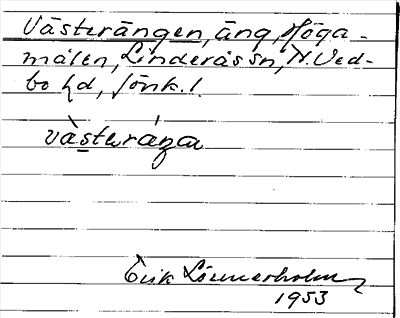 Västerängen, äng, Höga-
målen, Linderås sn, N. Ved-
bo hd, Jönk. l.
västeräŋa
Erik Lönnerholm
1953